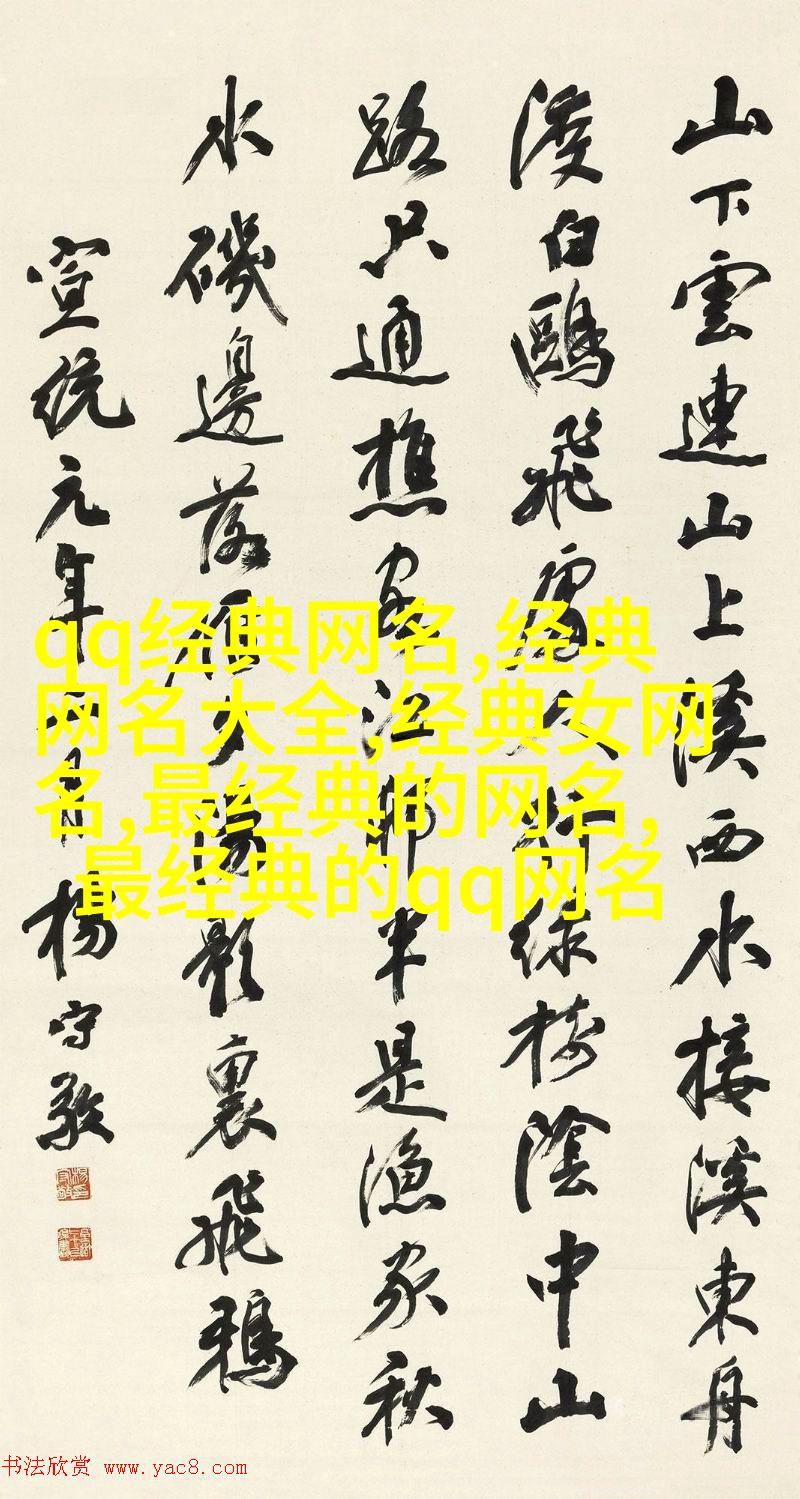 山下雲連山上溪西水接溪東舟
渡白鷗飛處人行綠樹陰中山
路只通樵客江邨半是漁家秋
水磯邊落雁夕陽影裏飛鴉
宣統元年 楊守敬
qq经典网名,经典
网名大全,经典女网
名,最经典的网名,
最经典的qq网名
书法欣赏 www.yac8.com